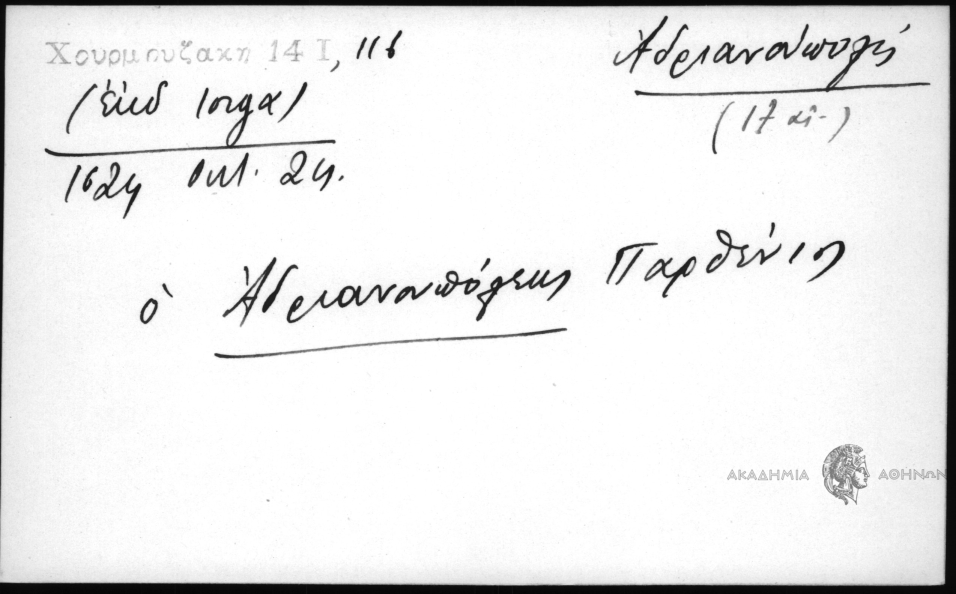 Χουρμουζακη 14 Ι, 116
Ἀδριανούπολις
(Ἐκδ Ιοrga)
(17 αἰ.)
1624 Οκτ. 24.
ὁ Ἀδριανουπόλεως Παρθένιος
ΑΚΑΔΗΜΙΑ ΑΘΗΝΩΝ